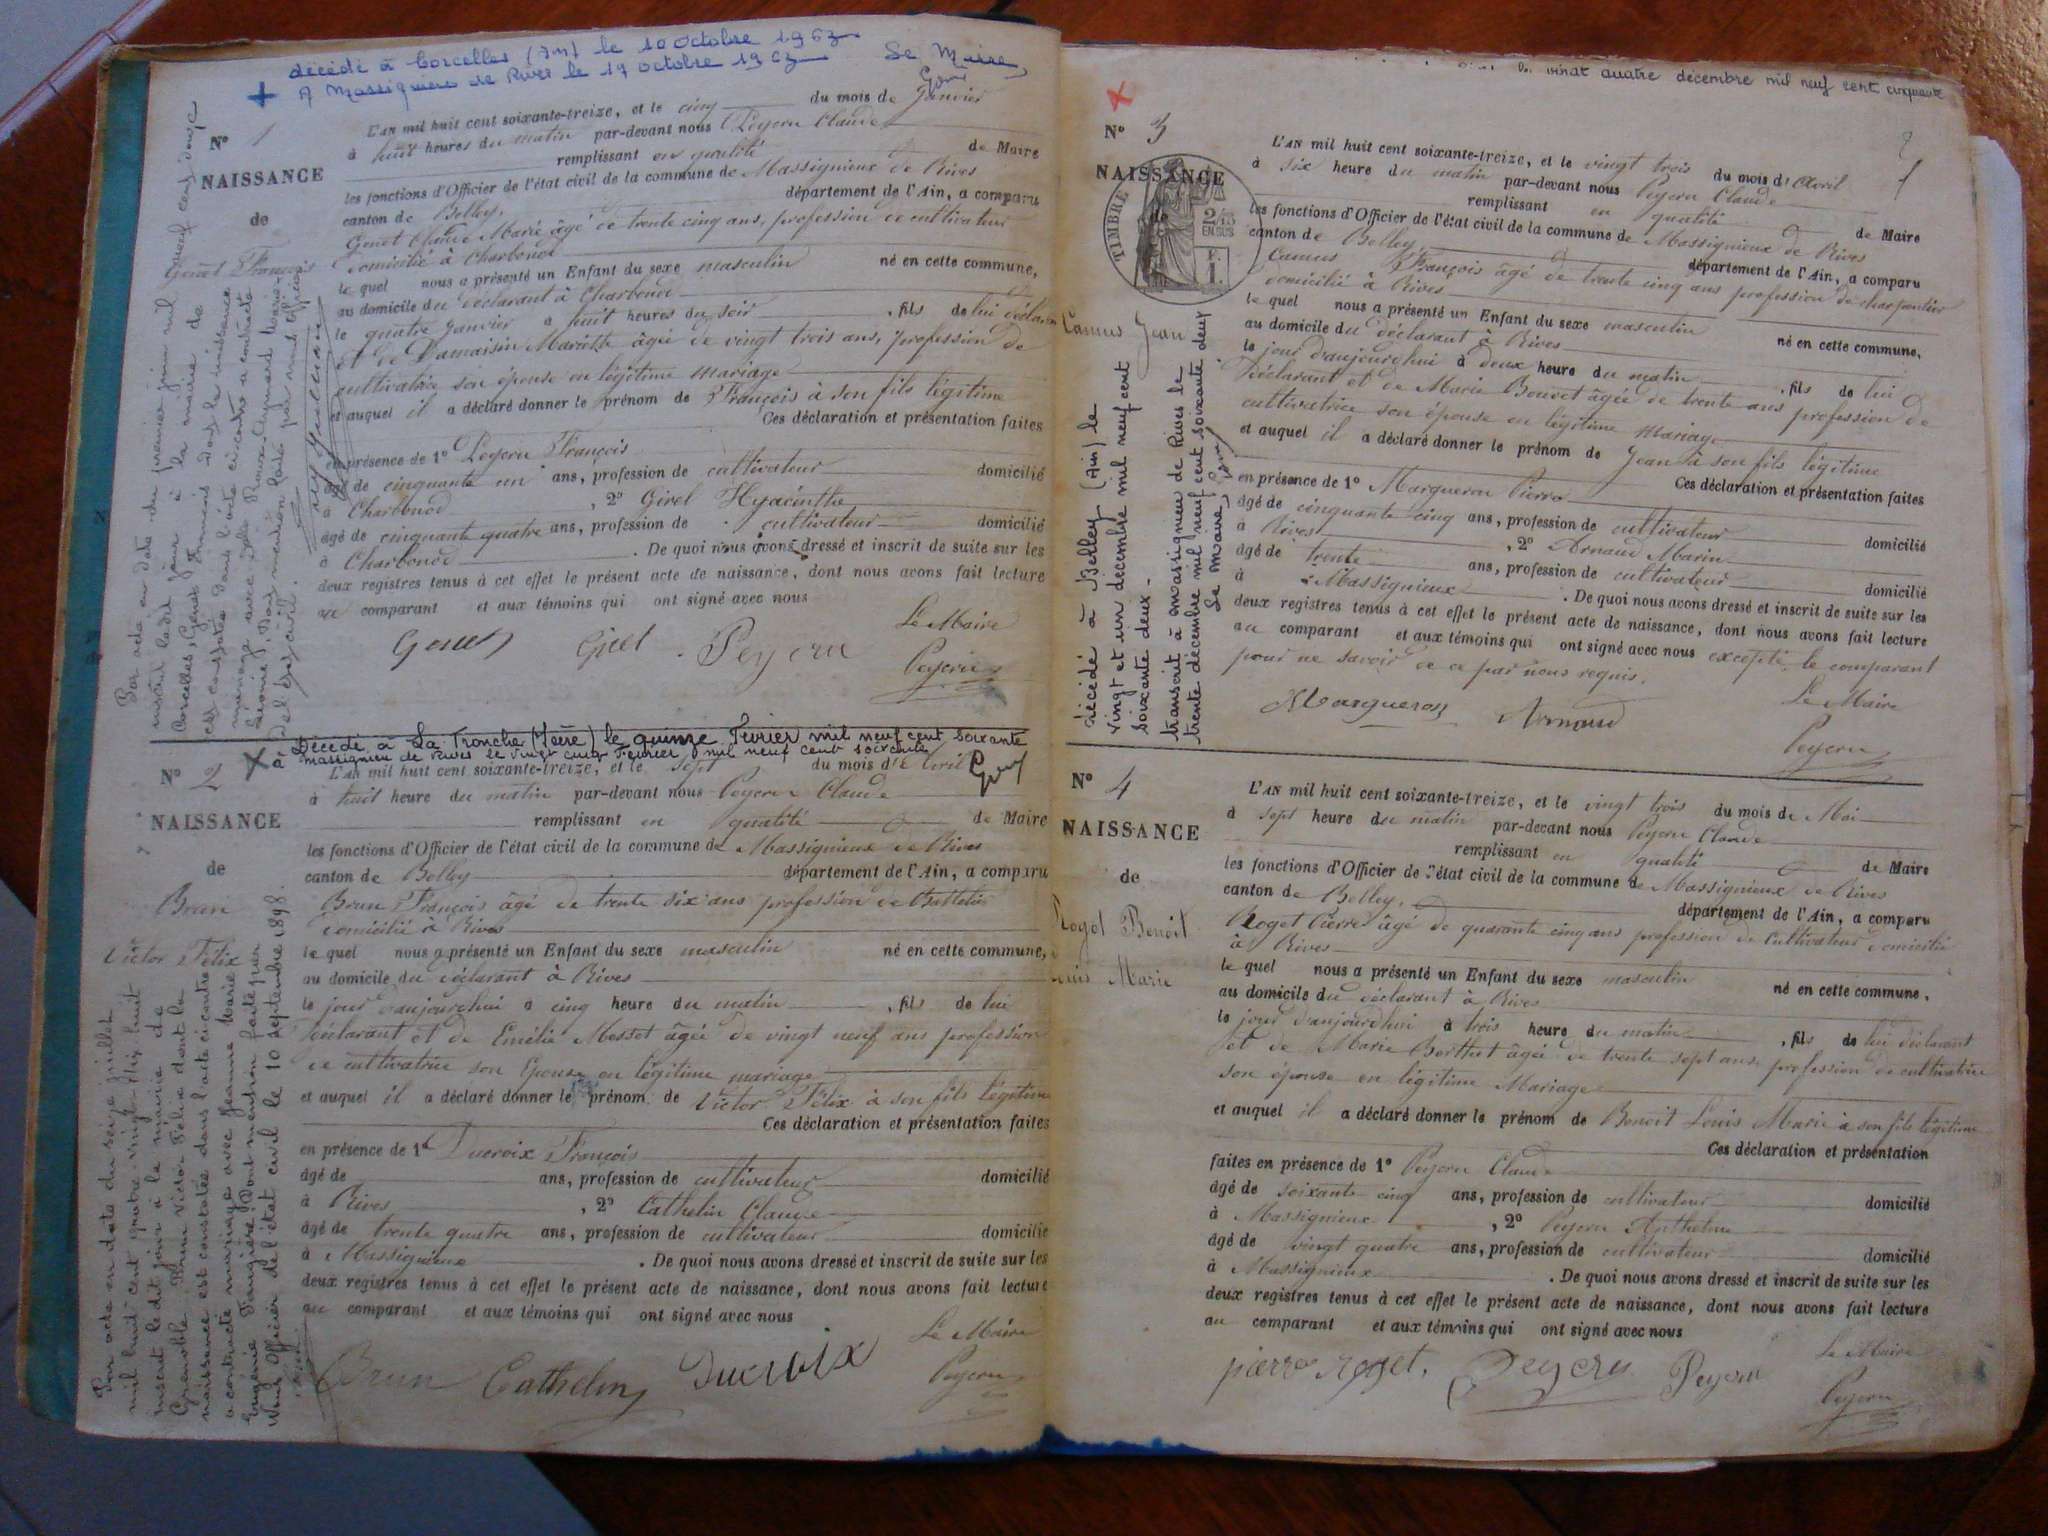 décédé à Corcelles (Ain) le 10 octobre 1963
A Massignieu de Rives le 17 octobre 1963 Le Maire
N° 1
NAISSANCE
de
Genet François
L'AN mil huit cent soixante-treize, et le cinq du mois de Janvier
à huit heures du matin par-devant nous Peyern Claude
remplissant en qualité de Maire
les fonctions d'Officier de l'état civil de la commune de Massignieux de Rives
canton de Belley, département de l'Ain, a comparu
Genet Marie âgé de trente cinq ans, profession de cultivateur
domicilié à Charbonod
le quel nous a présenté un Enfant du sexe masculin né en cette commune,
au domicile du déclarant à Charbonod
le quatre Janvier à huit heures du soir, fils de lui déclarant
et de Damaisin Mariette âgée de vingt trois ans, profession de
cultivatrice son épouse en légitime mariage
et auquel il a déclaré donner le prénom de François à son fils légitime
Ces déclaration et présentation faites
en présence de 1° Peyern François
âgé de cinquante un ans, profession de cultivateur domicilié
à Charbonod, 2° Girel Hyacinthe
âgé de cinquante quatre ans, profession de cultivateur domicilié
à Charbonod. De quoi nous avons dressé et inscrit de suite sur les
deux registres tenus à cet effet le présent acte de naissance, dont nous avons fait lecture
au comparant et aux témoins qui ont signé avec nous
Le Maire
Genet Girel Peyern Peyern
Par acte en date du premier juin mil neuf cent douze
inscrit le dit jour à la mairie de
Corcelles, Genet François dont la naissance
est constatée dans l'acte ci-contre a contracté
mariage avec
Décédé à La Tronche (Isère) le quinze Février mil neuf cent soixante
à Massignieu de Rives le vingt cinq Février mil neuf cent soixante
N° 2
NAISSANCE
de
Brun
Victor Félix
L'AN mil huit cent soixante-treize, et le sept du mois d'Avril
à huit heure du matin par-devant nous Peyern Claude
remplissant en qualité de Maire
les fonctions d'Officier de l'état civil de la commune de Massignieux de Rives
canton de Belley département de l'Ain, a comparu
Brun François âgé de trente six ans profession de
domicilié à Rives
le quel nous a présenté un Enfant du sexe masculin né en cette commune,
au domicile du déclarant à Rives
le jour d'aujourd'hui à cinq heure du matin, fils de lui
déclarant et de Emélie Mosset âgée de vingt neuf ans profession
de cultivatrice son Epouse en légitime mariage
et auquel il a déclaré donner le prénom de Victor Félix à son fils légitime
Ces déclaration et présentation faites
en présence de 1° Ducroix François
âgé de ans, profession de cultivateur domicilié
à Rives, 2° Cathelin Claude
âgé de trente quatre ans, profession de cultivateur domicilié
à Massignieux. De quoi nous avons dressé et inscrit de suite sur les
deux registres tenus à cet effet le présent acte de naissance, dont nous avons fait lecture
au comparant et aux témoins qui ont signé avec nous
Le Maire
Brun Cathelin Ducroix Peyern
Par acte en date du seize juillet
mil huit cent quatre vingt-dix huit
inscrit le dit jour à la mairie de
Grenoble Brun Victor Félix dont la
naissance est constatée dans l'acte ci-contre
a contracté mariage avec Jeanne Marie
Eugénie Faugère, Dont mention faite par
Nous Officier de l'état civil le 10 septembre 1898.
vingt quatre décembre mil neuf cent cinquante
N° 3
NAISSANCE
TIMBRE
2/10 EN SUS
F. 1.
Camus Jean
L'AN mil huit cent soixante-treize, et le vingt trois du mois d'Avril
à six heure du matin par-devant nous Peyern Claude
remplissant en qualité de Maire
les fonctions d'Officier de l'état civil de la commune de Massignieux de Rives
canton de Belley, département de l'Ain, a comparu
Camus François âgé de trente cinq ans profession de charpentier
domicilié à Rives
le quel nous a présenté un Enfant du sexe masculin né en cette commune,
au domicile du déclarant à Rives
le jour d'aujourd'hui à deux heure du matin, fils de lui
déclarant et de Marie Bouvet âgée de trente ans profession de
cultivatrice son épouse en légitime mariage
et auquel il a déclaré donner le prénom de Jean à son fils légitime
Ces déclaration et présentation faites
en présence de 1° Margueron Pierre
âgé de cinquante cinq ans, profession de cultivateur domicilié
à Rives, 2° Arnaud Marin
âgé de trente ans, profession de cultivateur domicilié
à Massignieux. De quoi nous avons dressé et inscrit de suite sur les
deux registres tenus à cet effet le présent acte de naissance, dont nous avons fait lecture
au comparant et aux témoins qui ont signé avec nous excepté le comparant
pour ne savoir de ce par nous requis.
Le Maire
Margueron Arnaud Peyern
décédé à Belley (Ain) le
vingt et un décembre mil neuf cent
soixante deux.
transcrit à Massignieu de Rives le
trente décembre mil neuf cent soixante deux
Le Maire,
N° 4
NAISSANCE
de
Roget Benoit
Louis Marie
L'AN mil huit cent soixante-treize, et le vingt trois du mois de Mai
à sept heure du matin par-devant nous Peyern Claude
remplissant en qualité de Maire
les fonctions d'Officier de l'état civil de la commune de Massignieux de Rives
canton de Belley, département de l'Ain, a comparu
Roget Pierre âgé de quarante cinq ans profession de cultivateur domicilié
à Rives
le quel nous a présenté un Enfant du sexe masculin né en cette commune,
au domicile du déclarant à Rives
le jour d'aujourd'hui à trois heure du matin, fils de lui déclarant
et de Marie Berthet âgée de trente sept ans profession de cultivatrice
son épouse en légitime Mariage
et auquel il a déclaré donner le prénom de Benoit Louis Marie à son fils légitime
Ces déclaration et présentation
faites en présence de 1° Peyern Claude
âgé de soixante cinq ans, profession de cultivateur domicilié
à Massignieux, 2° Peyern Anthelme
âgé de vingt quatre ans, profession de cultivateur domicilié
à Massignieux. De quoi nous avons dressé et inscrit de suite sur les
deux registres tenus à cet effet le présent acte de naissance, dont nous avons fait lecture
au comparant et aux témoins qui ont signé avec nous
Le Maire
pierre roget, Peyern Peyern Peyern